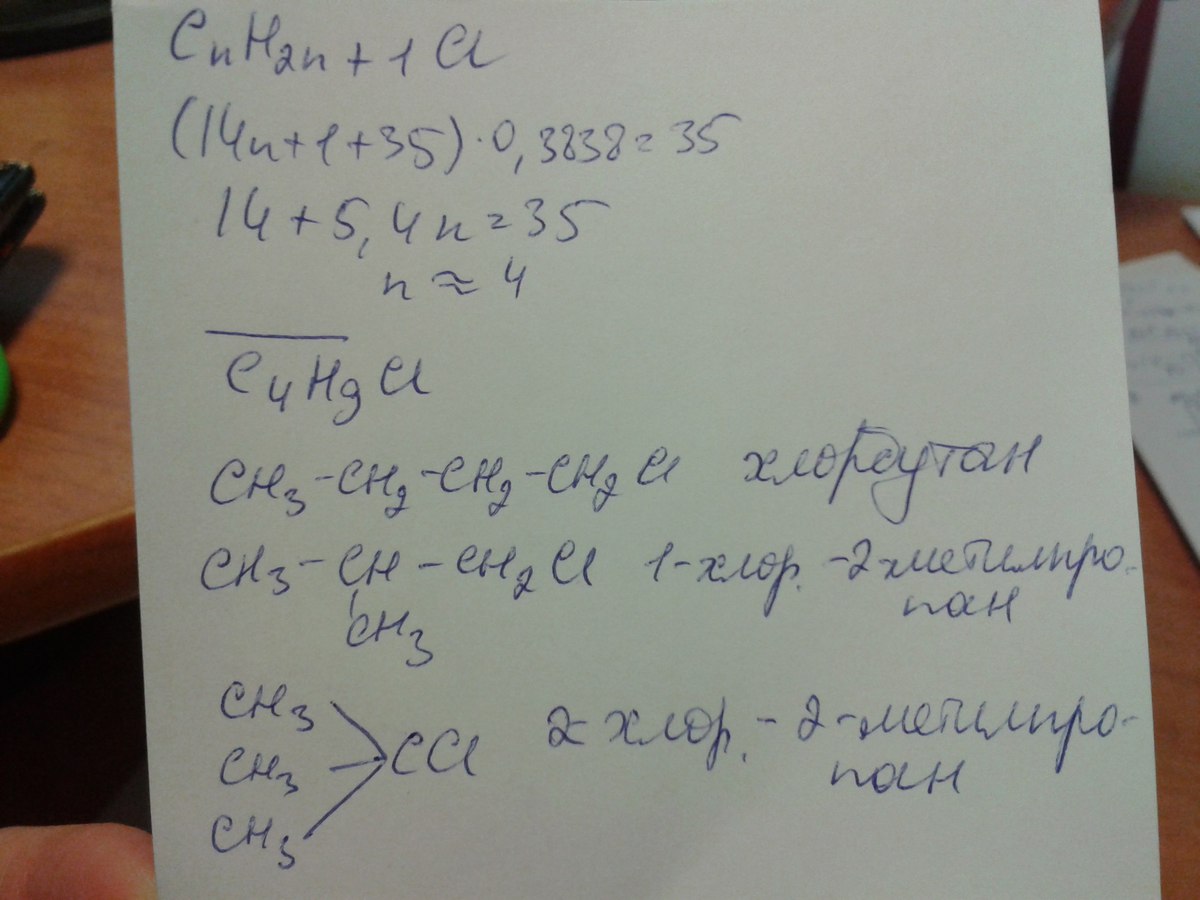 CnH2n+1Cl
(14n+1+35)·0,3838=35
14+5,4n=35
n≈4
C4H9Cl
CH3-CH2-CH2-CH2Cl хлорбутан
CH3-CH-CH2Cl 1-хлор.-2-метилпро-
CH3 пан
CH3
CH3 CCl 2-хлор.-2-метилпро-
CH3 пан